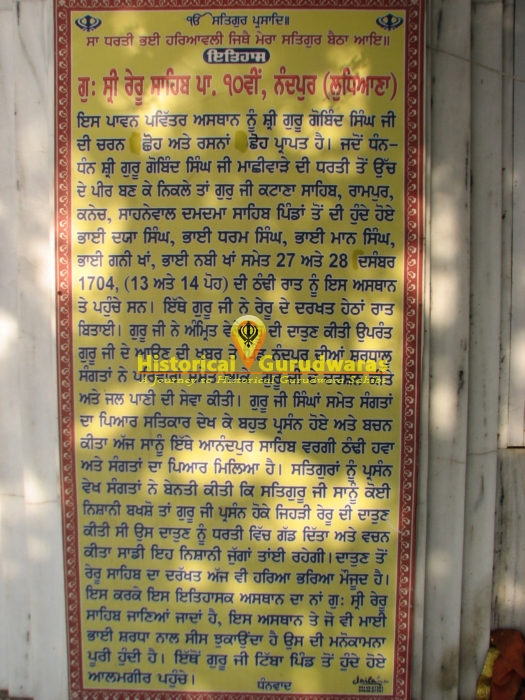 ੴ ਸਤਿਗੁਰ ਪ੍ਰਸਾਦਿ॥
ਸਾ ਧਰਤੀ ਭਈ ਹਰਿਆਵਲੀ ਜਿਥੈ ਮੇਰਾ ਸਤਿਗੁਰ ਬੈਠਾ ਆਇ॥
ਇਤਿਹਾਸ
ਗੁ: ਸ੍ਰੀ ਰੇਰੂ ਸਾਹਿਬ ਪਾ. ੧੦ਵੀਂ, ਨੰਦਪੁਰ (ਲੁਧਿਆਣਾ)
ਇਸ ਪਾਵਨ ਪਵਿੱਤਰ ਅਸਥਾਨ ਨੂੰ ਸ਼੍ਰੀ ਗੁਰੂ ਗੋਬਿੰਦ ਸਿੰਘ ਜੀ
ਦੀ ਚਰਨ ਛੋਹ ਅਤੇ ਰਸਨਾਂ ਛੋਹ ਪ੍ਰਾਪਤ ਹੈ। ਜਦੋਂ ਧੰਨ-
ਧੰਨ ਸ਼੍ਰੀ ਗੁਰੂ ਗੋਬਿੰਦ ਸਿੰਘ ਜੀ ਮਾਛੀਵਾੜੇ ਦੀ ਧਰਤੀ ਤੋਂ ਉੱਚ
ਦੇ ਪੀਰ ਬਣ ਕੇ ਨਿਕਲੇ ਤਾਂ ਗੁਰੂ ਜੀ ਕਟਾਣਾ ਸਾਹਿਬ, ਰਾਮਪੁਰ,
ਕਨੇਚ, ਸਾਹਨੇਵਾਲ ਦਮਦਮਾ ਸਾਹਿਬ ਪਿੰਡਾਂ ਤੋਂ ਦੀ ਹੁੰਦੇ ਹੋਏ
ਭਾਈ ਦਯਾ ਸਿੰਘ, ਭਾਈ ਧਰਮ ਸਿੰਘ, ਭਾਈ ਮਾਨ ਸਿੰਘ,
ਭਾਈ ਗਨੀ ਖਾਂ, ਭਾਈ ਨਬੀ ਖਾਂ ਸਮੇਤ 27 ਅਤੇ 28 ਦਸੰਬਰ
1704, (13 ਅਤੇ 14 ਪੋਹ) ਦੀ ਠੰਢੀ ਰਾਤ ਨੂੰ ਇਸ ਅਸਥਾਨ
ਤੇ ਪਹੁੰਚੇ ਸਨ। ਇੱਥੇ ਗੁਰੂ ਜੀ ਨੇ ਰੇਰੂ ਦੇ ਦਰਖਤ ਹੇਠਾਂ ਰਾਤ
ਬਿਤਾਈ। ਗੁਰੂ ਜੀ ਨੇ ਅੰਮ੍ਰਿਤ ਦੀ ਦਾਤੁਣ ਕੀਤੀ ਉਪਰੰਤ
ਗੁਰੂ ਜੀ ਦੇ ਆਉਣ ਦੀ ਖਬਰ ਨੰਦਪੁਰ ਦੀਆਂ ਸ਼ਰਧਾਲੂ
Historical Gurudwaras
A journey to Historical Gurudwara Sahibs
ਸੰਗਤਾਂ ਨੇ
ਅਤੇ ਜਲ ਪਾਣੀ ਦੀ ਸੇਵਾ ਕੀਤੀ। ਗੁਰੂ ਜੀ ਸਿੰਘਾਂ ਸਮੇਤ ਸੰਗਤਾਂ
ਦਾ ਪਿਆਰ ਸਤਿਕਾਰ ਦੇਖ ਕੇ ਬਹੁਤ ਪ੍ਰਸੰਨ ਹੋਏ ਅਤੇ ਬਚਨ
ਕੀਤਾ ਅੱਜ ਸਾਨੂੰ ਇੱਥੇ ਆਨੰਦਪੁਰ ਸਾਹਿਬ ਵਰਗੀ ਠੰਢੀ ਹਵਾ
ਅਤੇ ਸੰਗਤਾਂ ਦਾ ਪਿਆਰ ਮਿਲਿਆ ਹੈ। ਸਤਿਗੁਰਾਂ ਨੂੰ ਪ੍ਰਸੰਨ
ਵੇਖ ਸੰਗਤਾਂ ਨੇ ਬੇਨਤੀ ਕੀਤੀ ਕਿ ਸਤਿਗੁਰੂ ਜੀ ਸਾਨੂੰ ਕੋਈ
ਨਿਸ਼ਾਨੀ ਬਖਸ਼ੋ ਤਾਂ ਗੁਰੂ ਜੀ ਪ੍ਰਸੰਨ ਹੋਕੇ ਜਿਹੜੀ ਰੇਰੂ ਦੀ ਦਾਤੁਣ
ਕੀਤੀ ਸੀ ਉਸ ਦਾਤੁਣ ਨੂੰ ਧਰਤੀ ਵਿੱਚ ਗੱਡ ਦਿੱਤਾ ਅਤੇ ਵਚਨ
ਕੀਤਾ ਸਾਡੀ ਇਹ ਨਿਸ਼ਾਨੀ ਜੁੱਗਾਂ ਤਾਂਈ ਰਹੇਗੀ। ਦਾਤੁਣ ਤੋਂ
ਰੇਰੂ ਸਾਹਿਬ ਦਾ ਦਰੱਖਤ ਅੱਜ ਵੀ ਹਰਿਆ ਭਰਿਆ ਮੌਜੂਦ ਹੈ।
ਇਸ ਕਰਕੇ ਇਸ ਇਤਿਹਾਸਕ ਅਸਥਾਨ ਦਾ ਨਾਂ ਗੁ: ਸ਼੍ਰੀ ਰੇਰੂ
ਸਾਹਿਬ ਜਾਣਿਆਂ ਜਾਦਾਂ ਹੈ, ਇਸ ਅਸਥਾਨ ਤੇ ਜੋ ਵੀ ਮਾਈ
ਭਾਈ ਸ਼ਰਧਾ ਨਾਲ ਸੀਸ ਝੁਕਾਉਂਦਾ ਹੈ ਉਸ ਦੀ ਮਨੋਕਾਮਨਾ
ਪੂਰੀ ਹੁੰਦੀ ਹੈ। ਇੱਥੋਂ ਗੁਰੂ ਜੀ ਟਿੱਬਾ ਪਿੰਡ ਤੋਂ ਹੁੰਦੇ ਹੋਏ
ਆਲਮਗੀਰ ਪਹੁੰਚੇ। ਧੰਨਵਾਦ